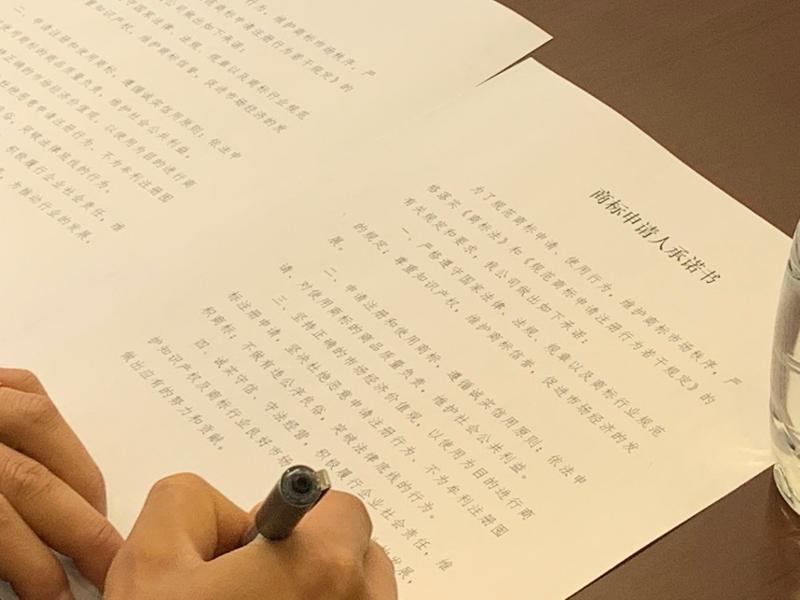 行为,维护商标市场秩序,严
商标申请注册行为若干规定》的
公司做出如下承诺:
守国家法律、法规、规章以及商标行业规范
重知识产权,维护商标信誉,促进市场经济的发
二、申请注册和使用商标,遵循诚实信用原则;依法申
使用商标的商品质量负责,维护社会公共利益。
正确的市场经济价值观,以使用为目的进行商
杜绝恶意申请注册行为、不为牟利注册囤
俗,突破法律底线的行为。
积极履行企业社会责任,维
为推动行业的发展,
商标申请人承诺书
为了规范商标申请、使用行为,维护商标市场秩序,严
格落实《商标法》和《规范商标申请注册行为若干规定》的
有关规定和要求,我公司做出如下承诺:
一、严格遵守国家法律、法规、规章以及商标行业规范
的规定;尊重知识产权,维护商标信誉,促进市场经济的发
展。
二、申请注册和使用商标,遵循诚实信用原则;依法申
请、对使用商标的商品质量负责,维护社会公共利益。
三、坚持正确的市场经济价值观,以使用为目的进行商
标注册申请,坚决杜绝恶意申请注册行为、不为牟利注册囤
积商标;不做有违公序良俗,突破法律底线的行为。
四、诚实守信、守法经营,积极履行企业社会责任,维
护知识产权及商标行业良好市场 发展,
做出应有的努力和贡献。